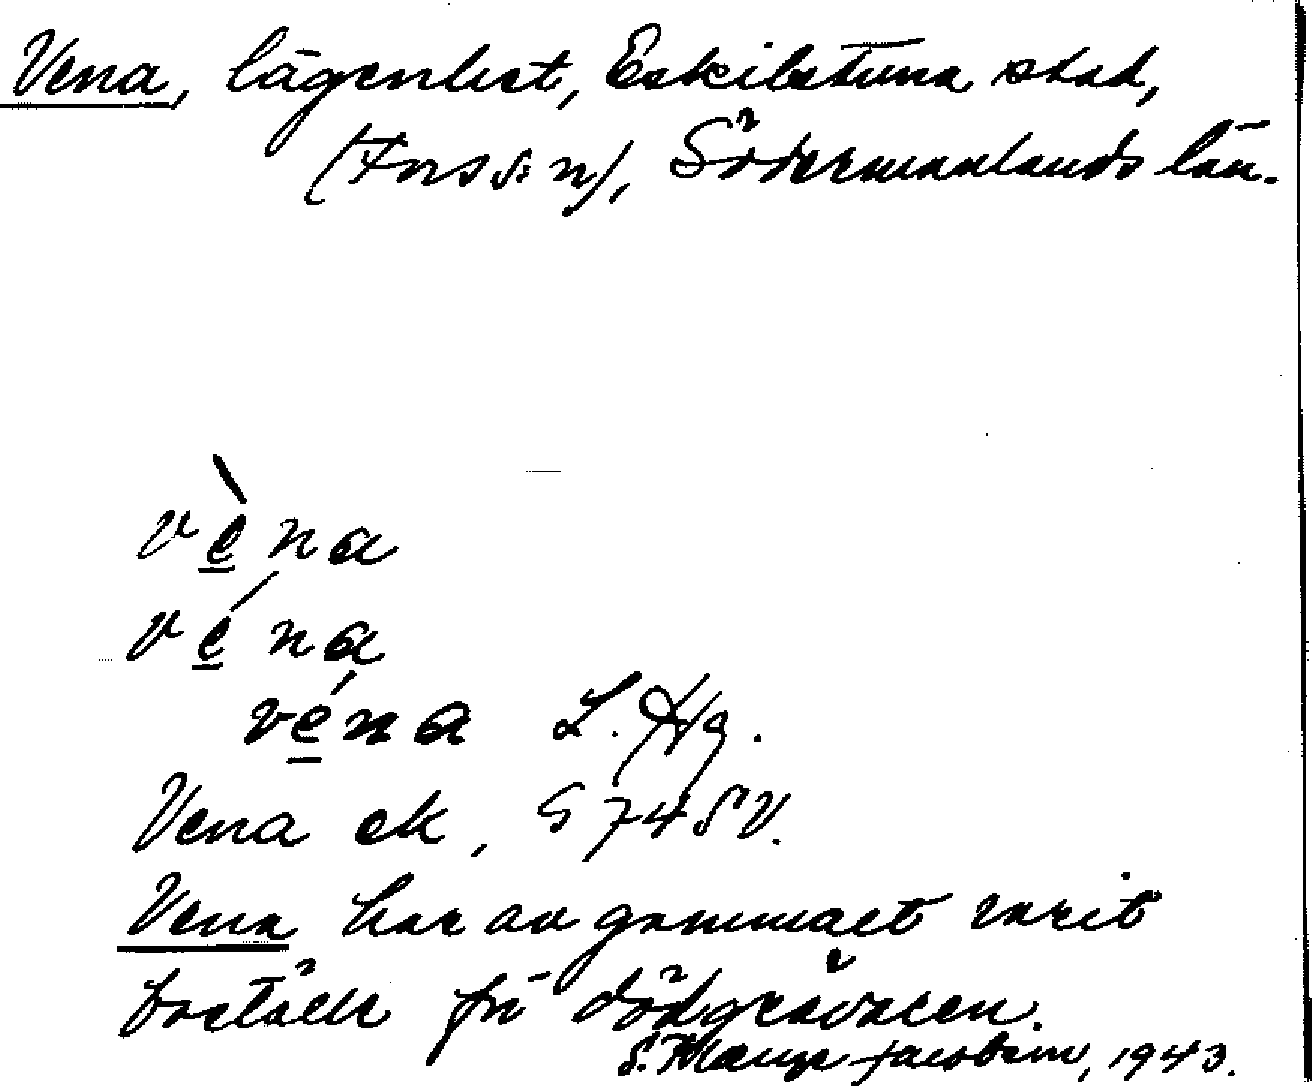 Vena, lägenhet, Eskilstuna stad,
(Fors sn), Södermanlands län.
vèna
véna
véna L. Hg.
Vena ek, G 74 SV.
Vena har av gammalt varit
boställe för dödgrävaren.
S. Jacobsson, 1943.